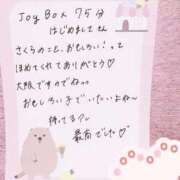 Joy Box 75分
はじめまして さん
さくらのこと、おもしろい！って
ほめてくれてありがとう♡
大阪ですのでねっっ
おもしろい子でいたいよね〜
待ってるワ〜
最高でした♡